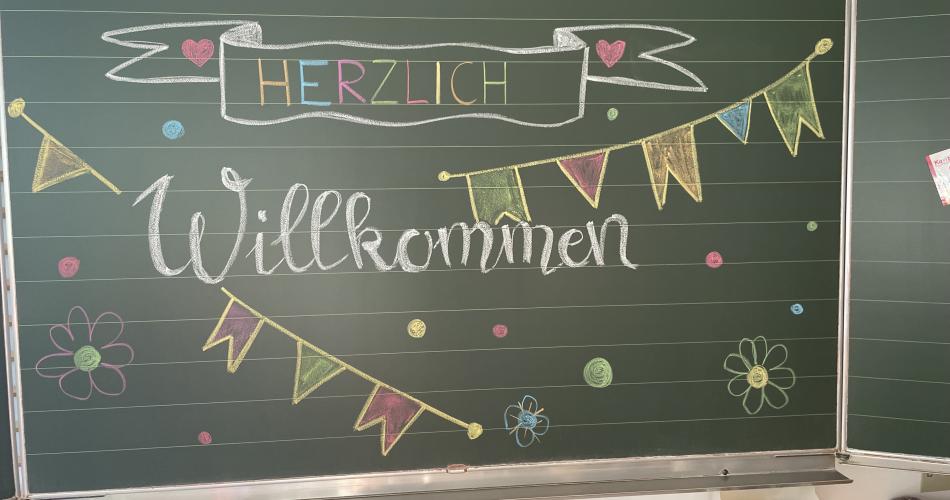 HERZLICH
Willkommen